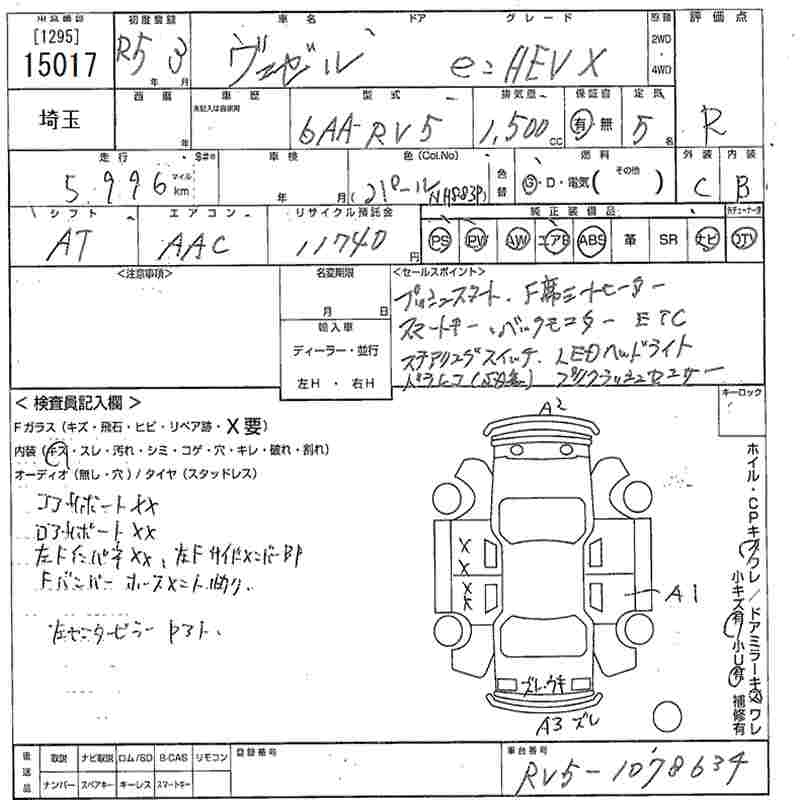 [1295]
15017
初度登録
R5 3
年 月
車名
ヴェゼル
ドア
グレード
e:HEV X
2WD
・
4WD
評価点
R
埼玉
西暦
年
車歴
未記入は自家用
型式
6AA-RV5
排気量
1,500
CC
保証書
有・無
定員
5
名
走行
5,996
マイル
km
車検
年 月
色(Col.No)
パール
NH883P
色替
燃料
G・D・電気( その他 )
外装
C
内装
B
シフト
AT
エアコン
AAC
リサイクル預託金
11740
円
純正装備品
PS PW AW エアB ABS 革 SR ナビ TV
<注意事項>
名変期限
月 日
輸入車
ディーラー・並行
左H ・ 右H
<セールスポイント>
プッシュスタート、F席シートヒーター
スマートキー、バックモニター ETC
ステアリングスイッチ、LEDヘッドライト
キーロック
< 検査員記入欄 >
Fガラス(キズ・飛石・ヒビ・リペア跡・X要)
内装(キズ・スレ・汚れ・シミ・コゲ・穴・キレ・破れ・割れ)
オーディオ(無し・穴)/タイヤ(スタッドレス)
コアサポートXX
ロアサポートXX
左FインパネXX、左FサイドメンバーBP
Fバンパーホースメント曲り、
左センターピラー
A2
XX
XX
A1
ズレ・ウキ
A3 ズレ
ホイル・CPキズワレ/ドアミラーキズワレ
小キズ有 小U有 補修有
後送品
取説 ナビ取説 ロム/SD B-CAS リモコン
ナンバー スペアキー キーレス スマートキー
登録番号
車台番号
RV5-1078634